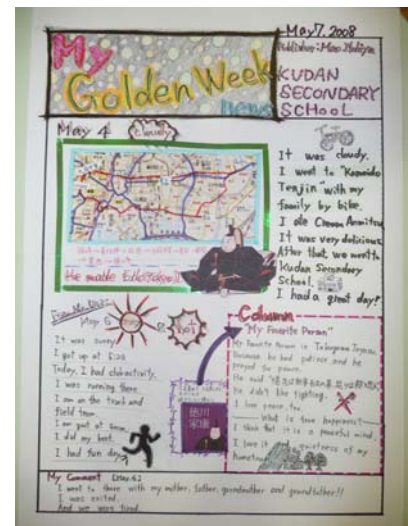 May 7, 2008
My
Golden Week
News
KUDAN
SECONDARY
SCHOOL
May 4
cloudy
It was cloudy.
I went to "Kameido
Tenjin with my
family by bike.
I ate Cream Anmitsu.
It was very delicious.
After that, we went to
Kudan Secondary
School.
I had a great day!
He made Edo(Tokyo)!
May 6
hot
It was sunny.
I got up at 6:20.
Today, I had club activity.
I was running there.
I am on the track and
field team.
I am good at
I did my best.
I had fun day.
Column
"My Favorite Person"
My favorite person is Tokugawa Ieyasu.
Because he had patience and he
prayed for peace.
He said
He didn't like fighting.
I love peace, too.
What is true happiness
I think that it is a peaceful mind.
I love it and quietness of my
hometown
徳川
家康
My Comment
I went to there with my mother, father, grandmother and grandfather!!
I was exited.
And we was tired.